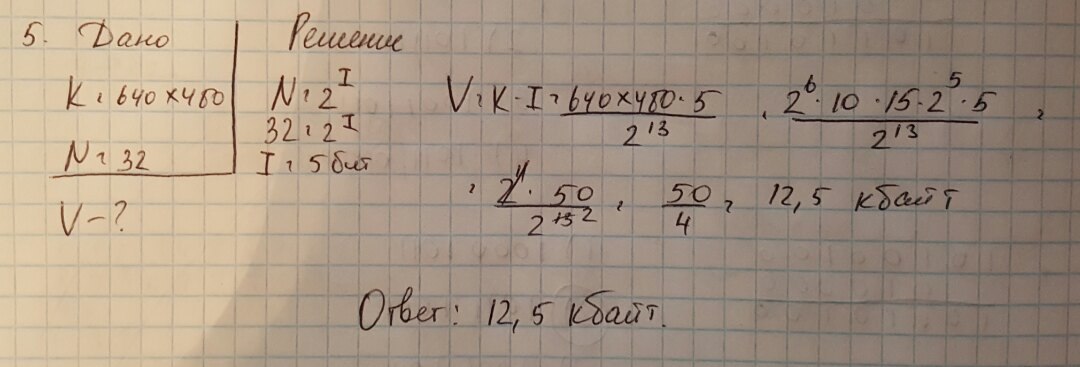 5. Дано Решение
K = 640×480
N = 32
V - ?
N = 2^I
32 = 2^I
I = 5 бит
V = K · I = 640×480 · 5 / 2^13 = 2^6 · 10 · 15 · 2^5 · 5 / 2^13 =
= 2^11 · 50 / 2^13 2 = 50 / 4 = 12,5 кбайт
Ответ: 12,5 кбайт.